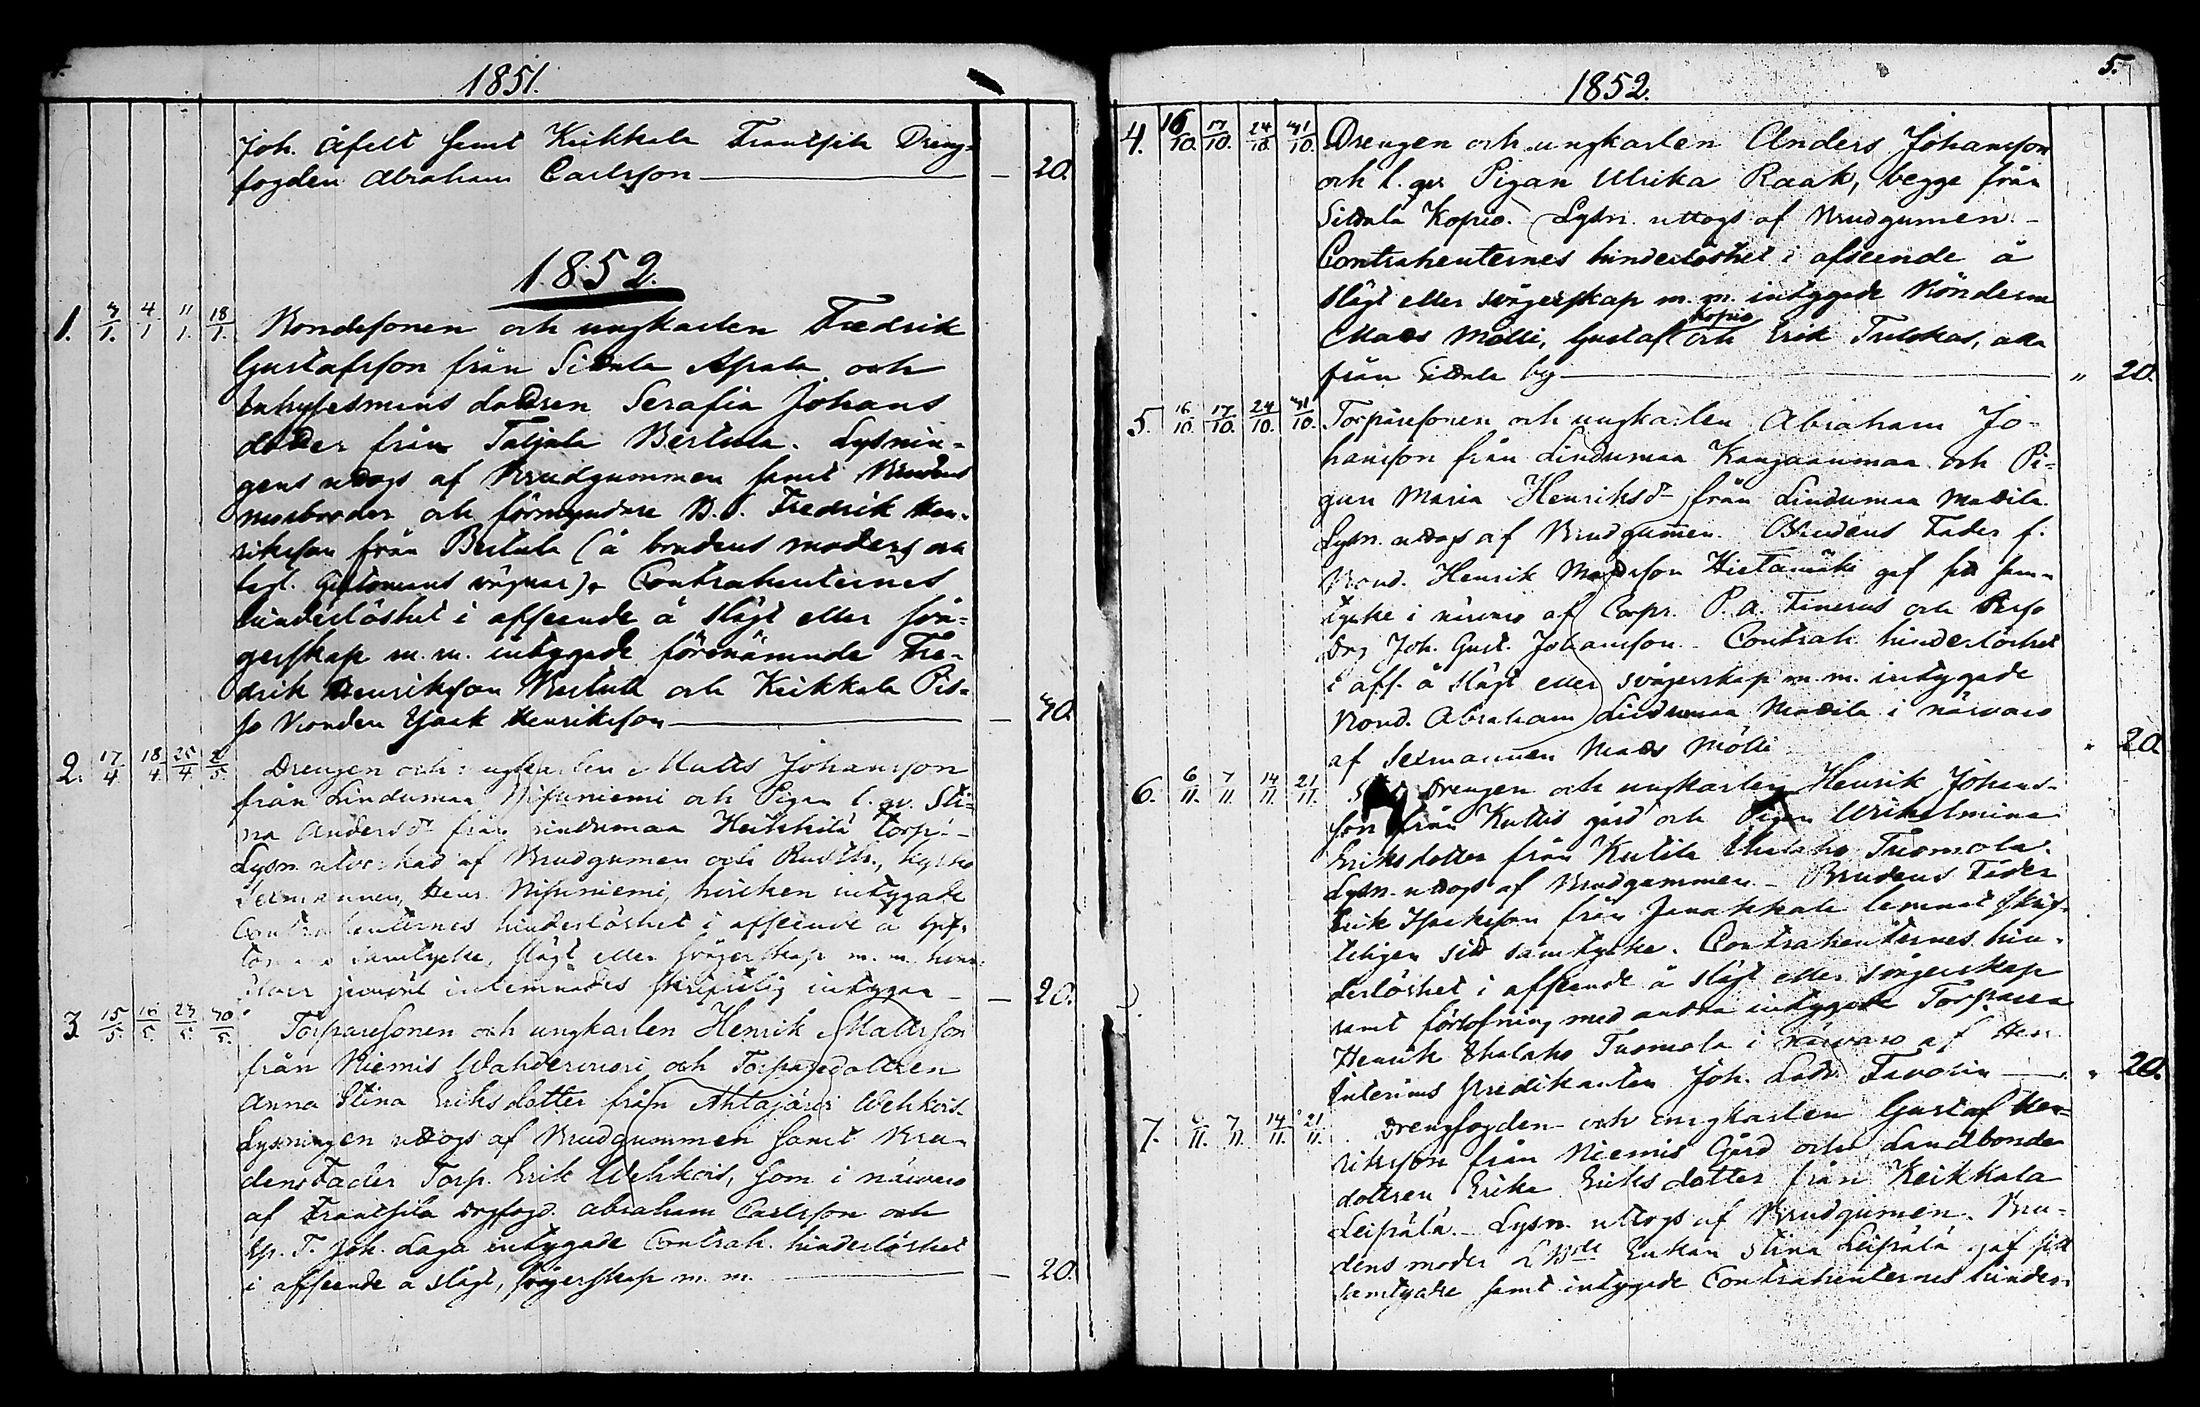 1851.
Joh. Åfelt samt Keikkala Frantsila Dreng-
fogden Abraham Carlsson — 20.
1852.
1. 3/1. 4/1 11/1. 18/1. Bondesonen och ungkarlen Fredrik
Gustafsson från Sillala Apala och
Inhysesmans dottren Serafia Johans
dotter från Taljala Bertula. Lysnin-
gens uttogs af Brudgummen samt Brudens
morbroder och förmyndare B. S. Fredrik Hen-
riksson från Bertula (å brudens moders och
egl. Giftomans vägnar). Contrahenternes
hinderlöshet i afseende å slägt eller svå-
gerskap m. m. intygade förenämnde Fre-
drik Henriksson Bertula och Keikkala Pis-
so Bonden Isaak Henriksson — 40.
2. 17/4. 18/4. 25/4 2/5. Drengen och ungkarlen Matts Johansson
från Lindumaa Nisuniemi och Pigan l. qv. Sti-
na Andersdr från Lindumaa Heikkilä torp.
Lysn. utverkad af Brudgumen och Rusth., Kyrko
Sexmannen Henr. Nisuniemi, hvilken intygade
Contrahenternes hinderlöshet i afseende å Gif-
tomans samtycke, slägt eller svågerskap m. m.
inlemnades skriftelig intygan — 20.
3 15/5. 16/5. 23/5. 30/5. Torparesonen och ungkarlen Henrik Mattsson
från Niemis Wahdervuori och Torparedottren
Anna Stina Eriksdotter från Ahtajärvi Wehkois.
Lysningen uttogs af Brudgummen samt Bru-
dens Fader Torp. Erik Wehkois, som i närvaro
af Frantsila Drgfogd. Abraham Carlsson och
Sp. T. Joh. Laga intygade Contrah. hinderlöshet
i afseende å slägt, svågerskap m. m. — 20.
5.
1852.
4. 16/10. 17/10. 24/10. 31/10. Drengen och ungkarlen Anders Johansson
och l. qv. Pigan Ulrika Raak, begge från
Sillala Kopio. Lysn. uttogs af Brudgumen. –
Contrahenternes hinderlöshet i afseende å
slägt eller svågerskap m. m. intygade Bönderne
Matts Mölli, Gustaf Kopio och Erik Trelskas, alla
från Sillala by — " 20.
5. 16/10. 17/10. 24/10. 31/10. Torparesonen och ungkarlen Abraham Jo-
hansson från Lindumaa Kangaanmaa och Pi-
gan Maria Henriksdr från Lindumaa Mattila.
Lysn. uttogs af Brudgumen. Brudens Fader f.
Bond. Henrik Mattsson Hietamäki gaf sit sam-
tycke i närvaro af Corpr. P. A. Finerus och
Drg Joh. Gust. Johansson. Contrah. hinderlöshet
i afs. å slägt eller svågerskap m. m. intygade
Bond. Abraham Lindumaa Mattila i närvaro
af Sexmannen Matts Mölli. " 20.
6. 6/11. 7/11. 14/11. 21/11. Drengen och ungkarlen Henrik Johans-
son från Kuttis gård och Pigan Wilhelmina
Eriksdotter från Kutila Uhalaho Tuomola.
Lysn. uttogs af Brudgummen. – Brudens Fader
Erik Isaksson från Janakkala lemnat skrif-
teligen sitt samtycke. Contrahenternes hin-
derlöshet i afseende å slägt eller svågerskap
samt förlofning med andra intygade Torparen
Henrik Uhalaho Tuomola i närvaro af Herr
Interims predikanten Joh. Ludv. Favorin — " 20.
7. 6/11. 7/11. 14/11. 21/11. Drengfogden och ungkarlen Gustaf Hen-
riksson från Niemis Gård och Landbonde
dottren Erika Eriksdotter från Keikkala
Leipälä. – Lysn. uttogs af Brudgumen. Bru-
dens moder LBde Enkan Stina Leipälä gaf sitt
samtycke samt intygade Contrahenternes hinder-